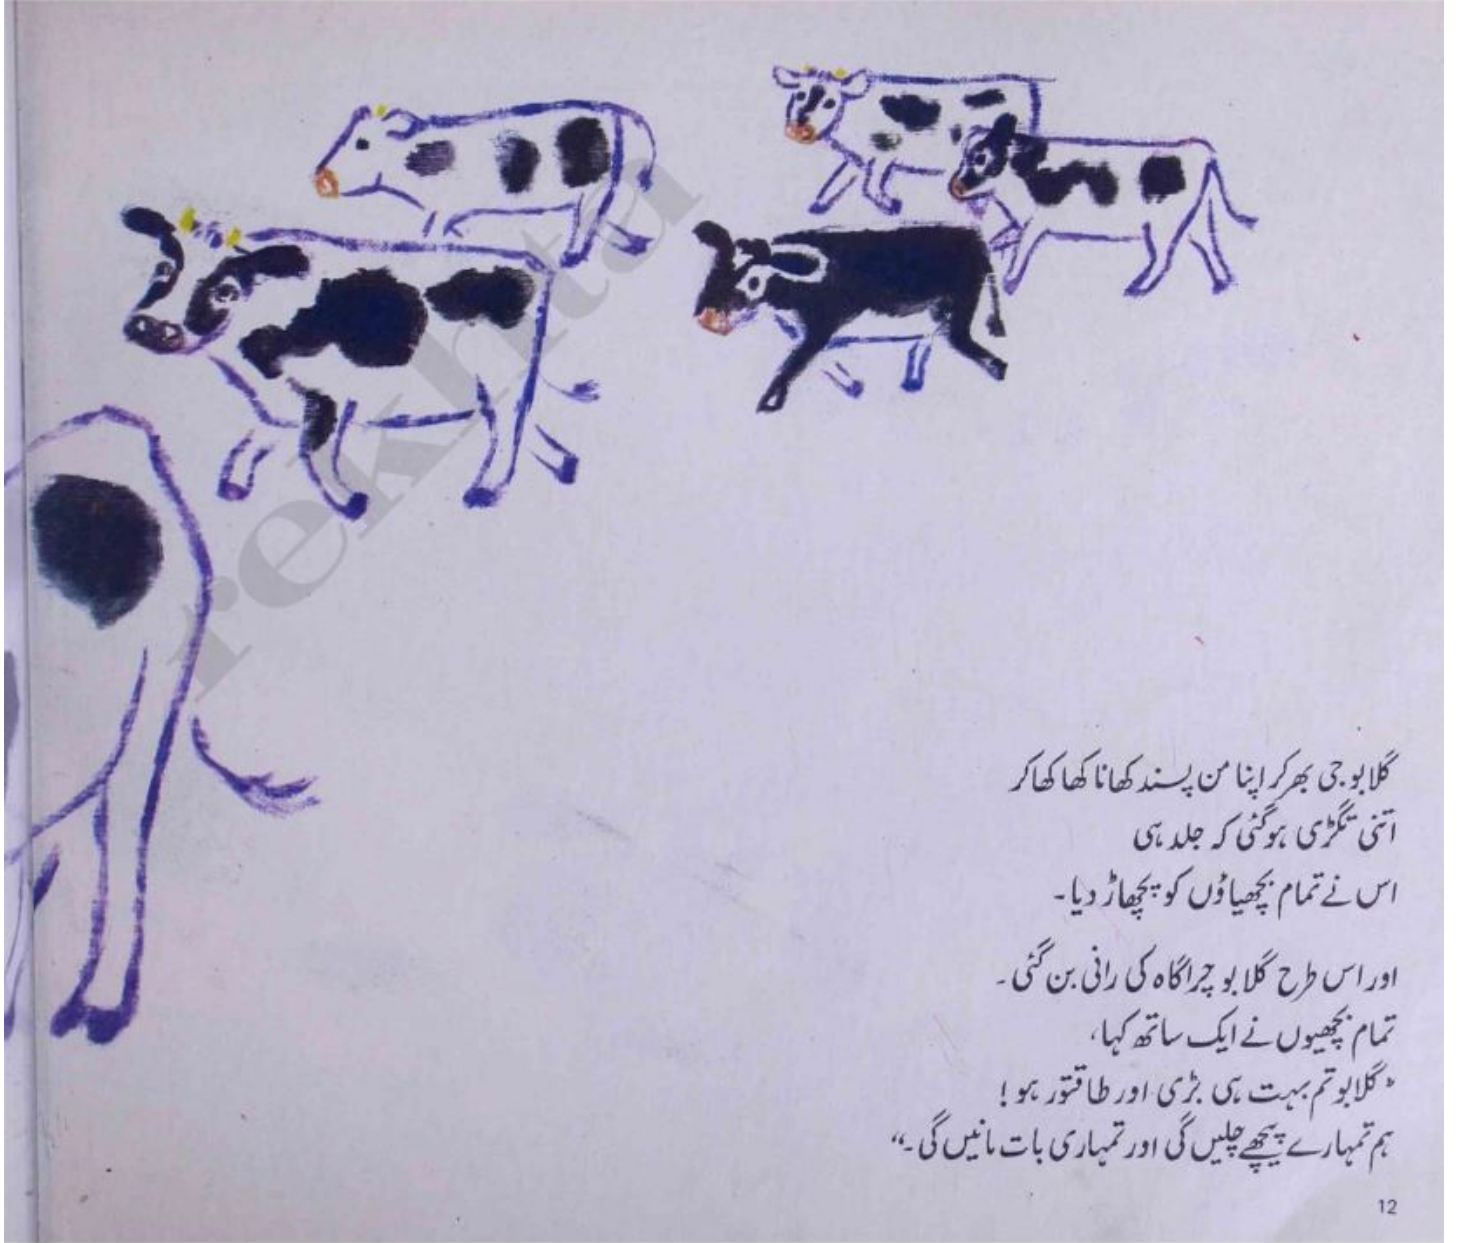 rekhta
گلابو جی بھر کر اپنا من پسند کھانا کھا کھا کر
اتنی تگڑی ہوگئی کہ جلد ہی
اس نے تمام بچھیاؤں کو پچھاڑ دیا۔
اور اس طرح گلابو چراگاہ کی رانی بن گئی۔
تمام بچھیوں نے ایک ساتھ کہا،
"گلابو تم بہت ہی بڑی اور طاقتور ہو!
ہم تمہارے پیچھے چلیں گی اور تمہاری بات مانیں گی۔"
12